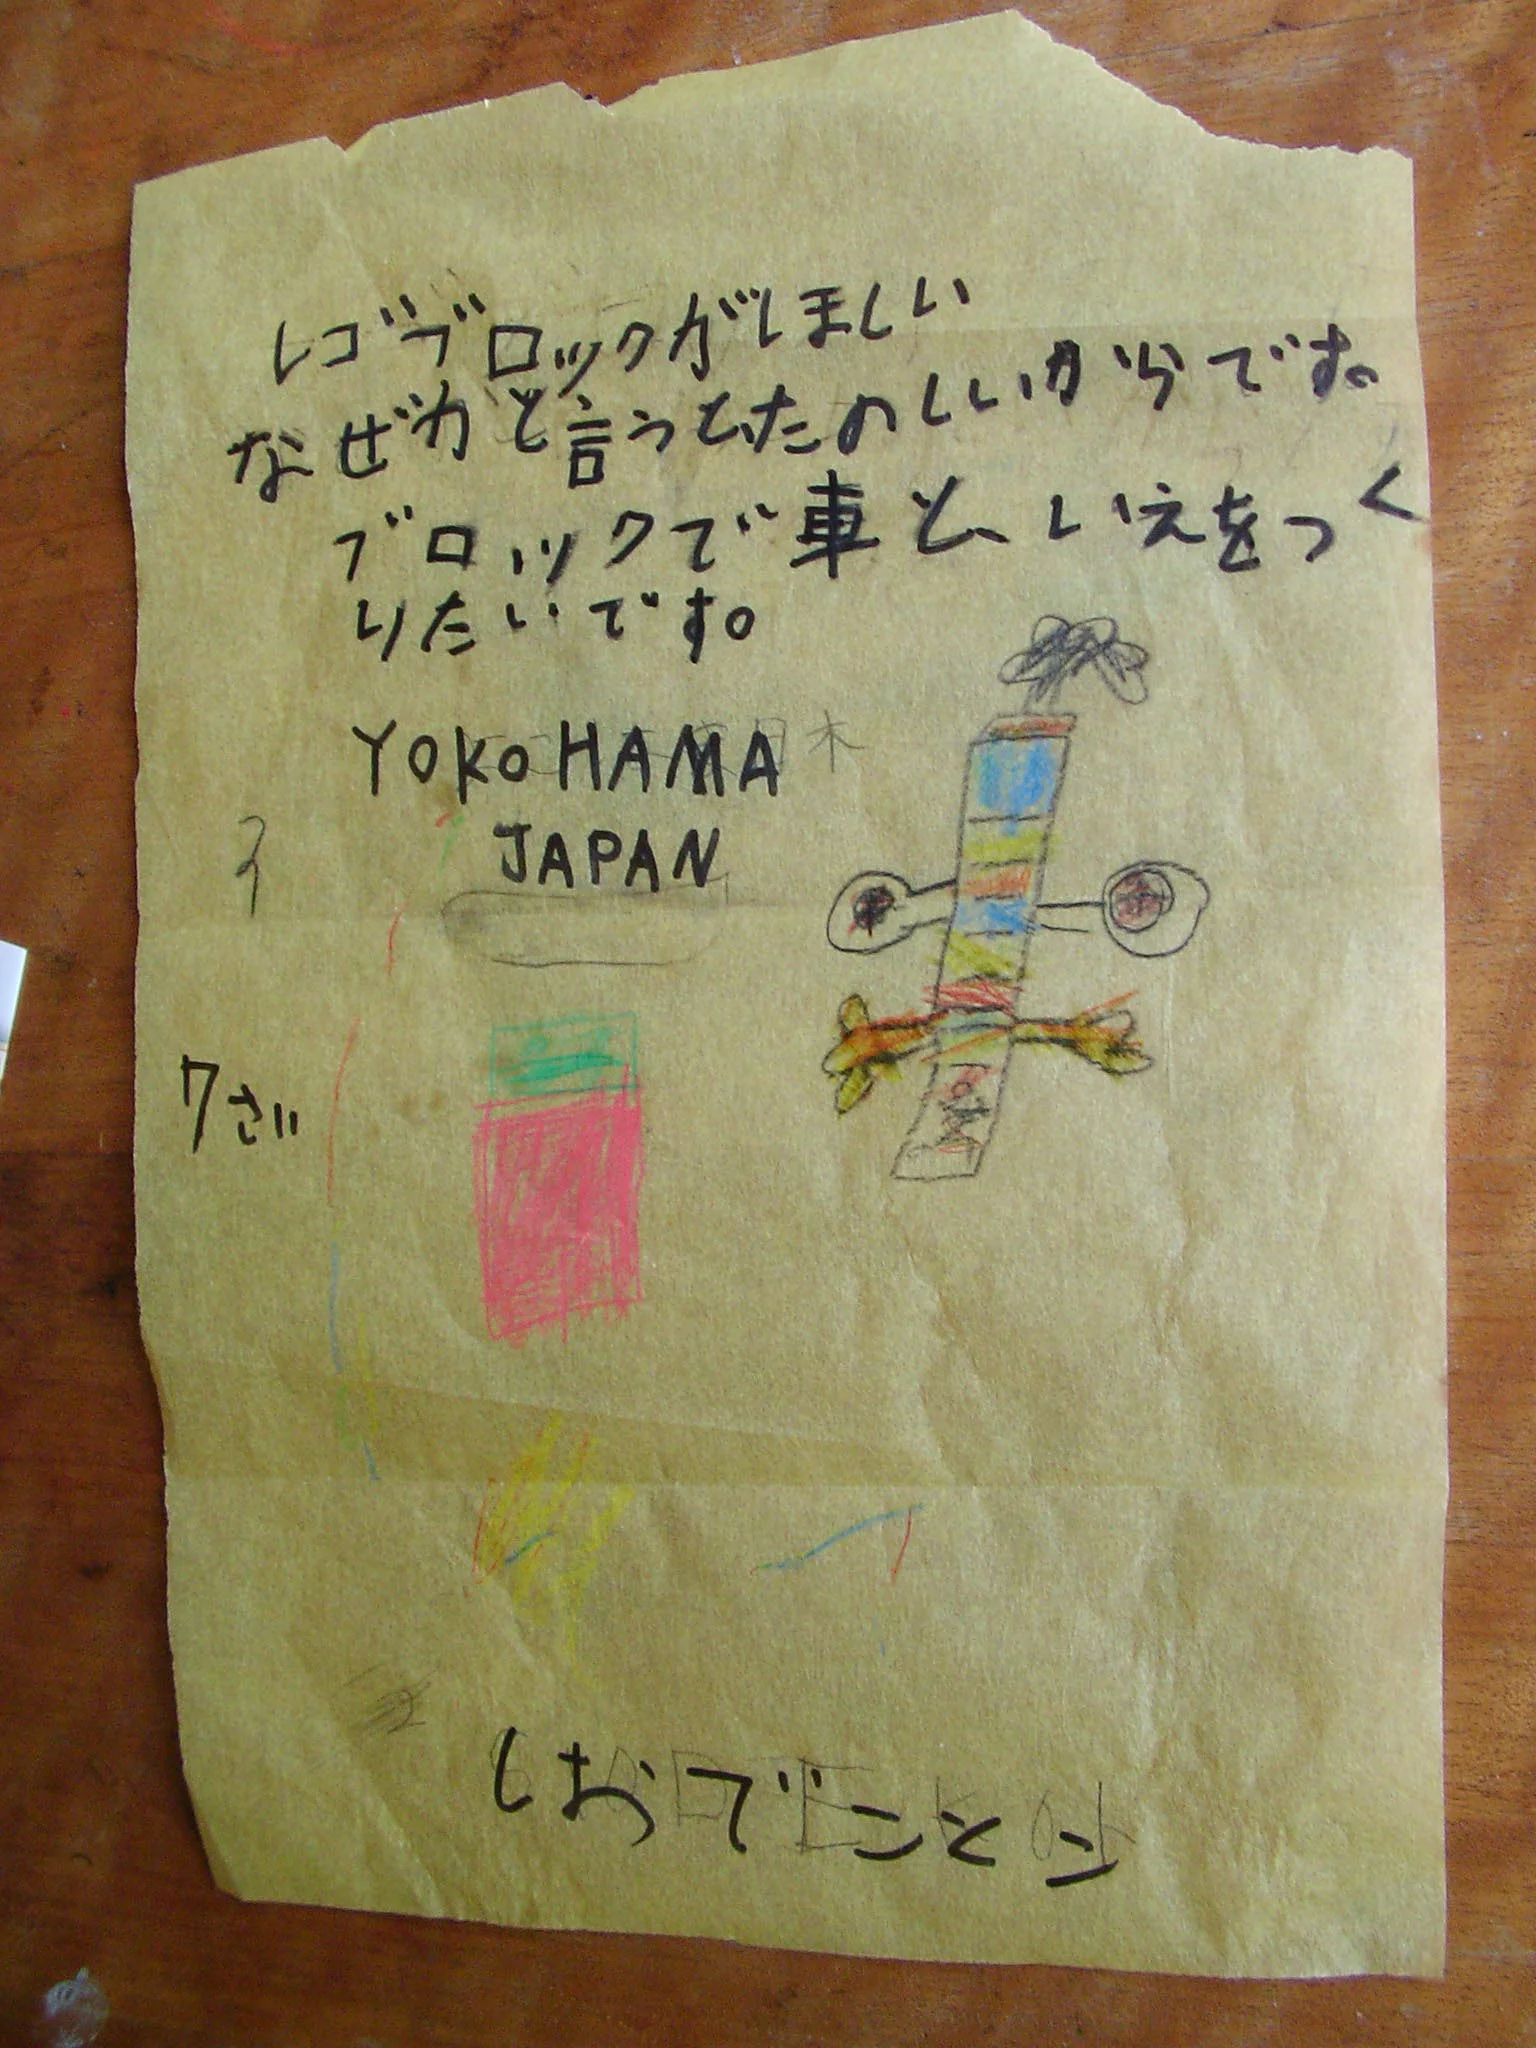 レゴブロックがほしい
なぜかと言うとたのしいからです。
ブロックで車と、いえをつく
りたいです。
YOKOHAMA
JAPAN
7さい